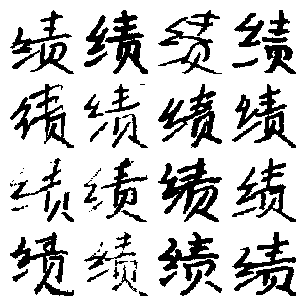 绩绩绩绩
绩绩绩绩
绩绩绩绩
绩绩绩绩